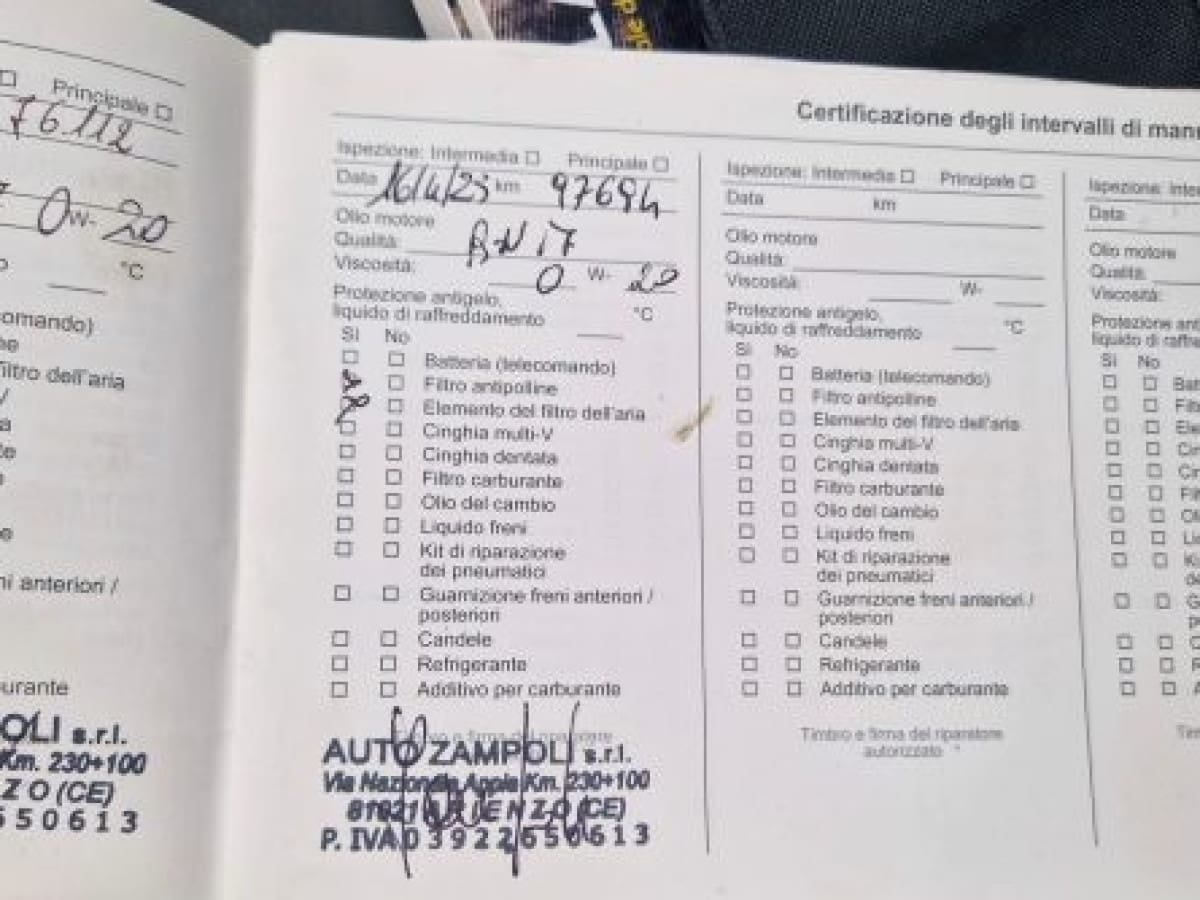 Principale
76112
0 W- 20
°C
comando)
filtro dell'aria
ni anteriori /
urante
OLI s.r.l.
Km. 230+100
ZO (CE)
550613
Certificazione degli intervalli di
Ispezione: Intermedia Principale
Data 16/4/23 km 97694
Olio motore
Qualità: RN17
Viscosità: 0 W- 20
Protezione antigelo,
liquido di raffreddamento °C
Sì No
Batteria (telecomando)
Filtro antipolline
Elemento del filtro dell'aria
Cinghia multi-V
Cinghia dentata
Filtro carburante
Olio del cambio
Liquido freni
Kit di riparazione
dei pneumatici
Guarnizione freni anteriori /
posteriori
Candele
Refrigerante
Additivo per carburante
AUTO ZAMPOLI s.r.l.
Via Nazionale Appia Km. 230+100
81021 ARIENZO (CE)
P. IVA 03922650613
Ispezione: Intermedia Principale
Data km
Olio motore
Qualità:
Viscosità: W-
Protezione antigelo,
liquido di raffreddamento °C
Sì No
Batteria (telecomando)
Filtro antipolline
Elemento del filtro dell'aria
Cinghia multi-V
Cinghia dentata
Filtro carburante
Olio del cambio
Liquido freni
Kit di riparazione
dei pneumatici
Guarnizione freni anteriori /
posteriori
Candele
Refrigerante
Additivo per carburante
Timbro e firma del riparatore
autorizzato
Ispezione: Inte
Data
Olio motore
Qualità:
Viscosità:
Protezione an
liquido di raffre
Sì No